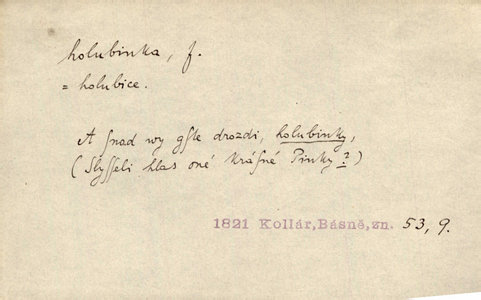 holubinka, f.
= holubice.
A snad wy gste drozdi, holubinky,
(Slysseli hlas oné krásné Pinky?)
1821 Kollár, Básně, zn. 53, 9.